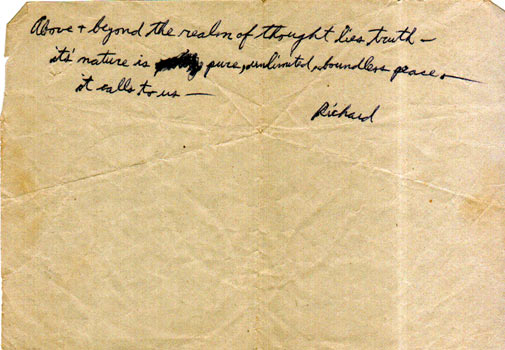 Above + beyond the realm of thought lies truth –
its' nature is pure, unlimited, boundless peace.
it calls to us –
Richard